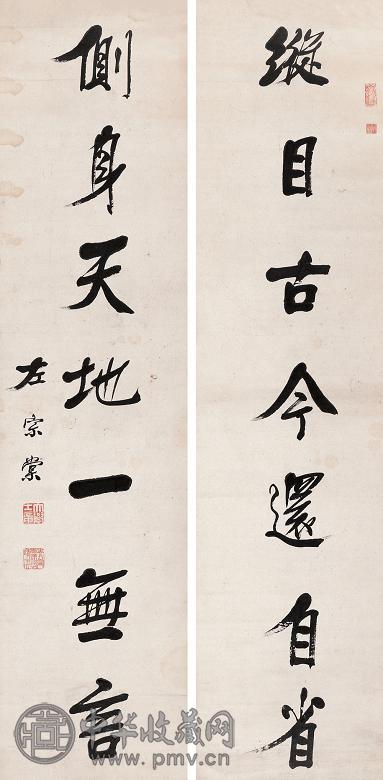 縱目古今還自省
側身天地一無言
左宗棠
中华收藏网
www.pmv.cn